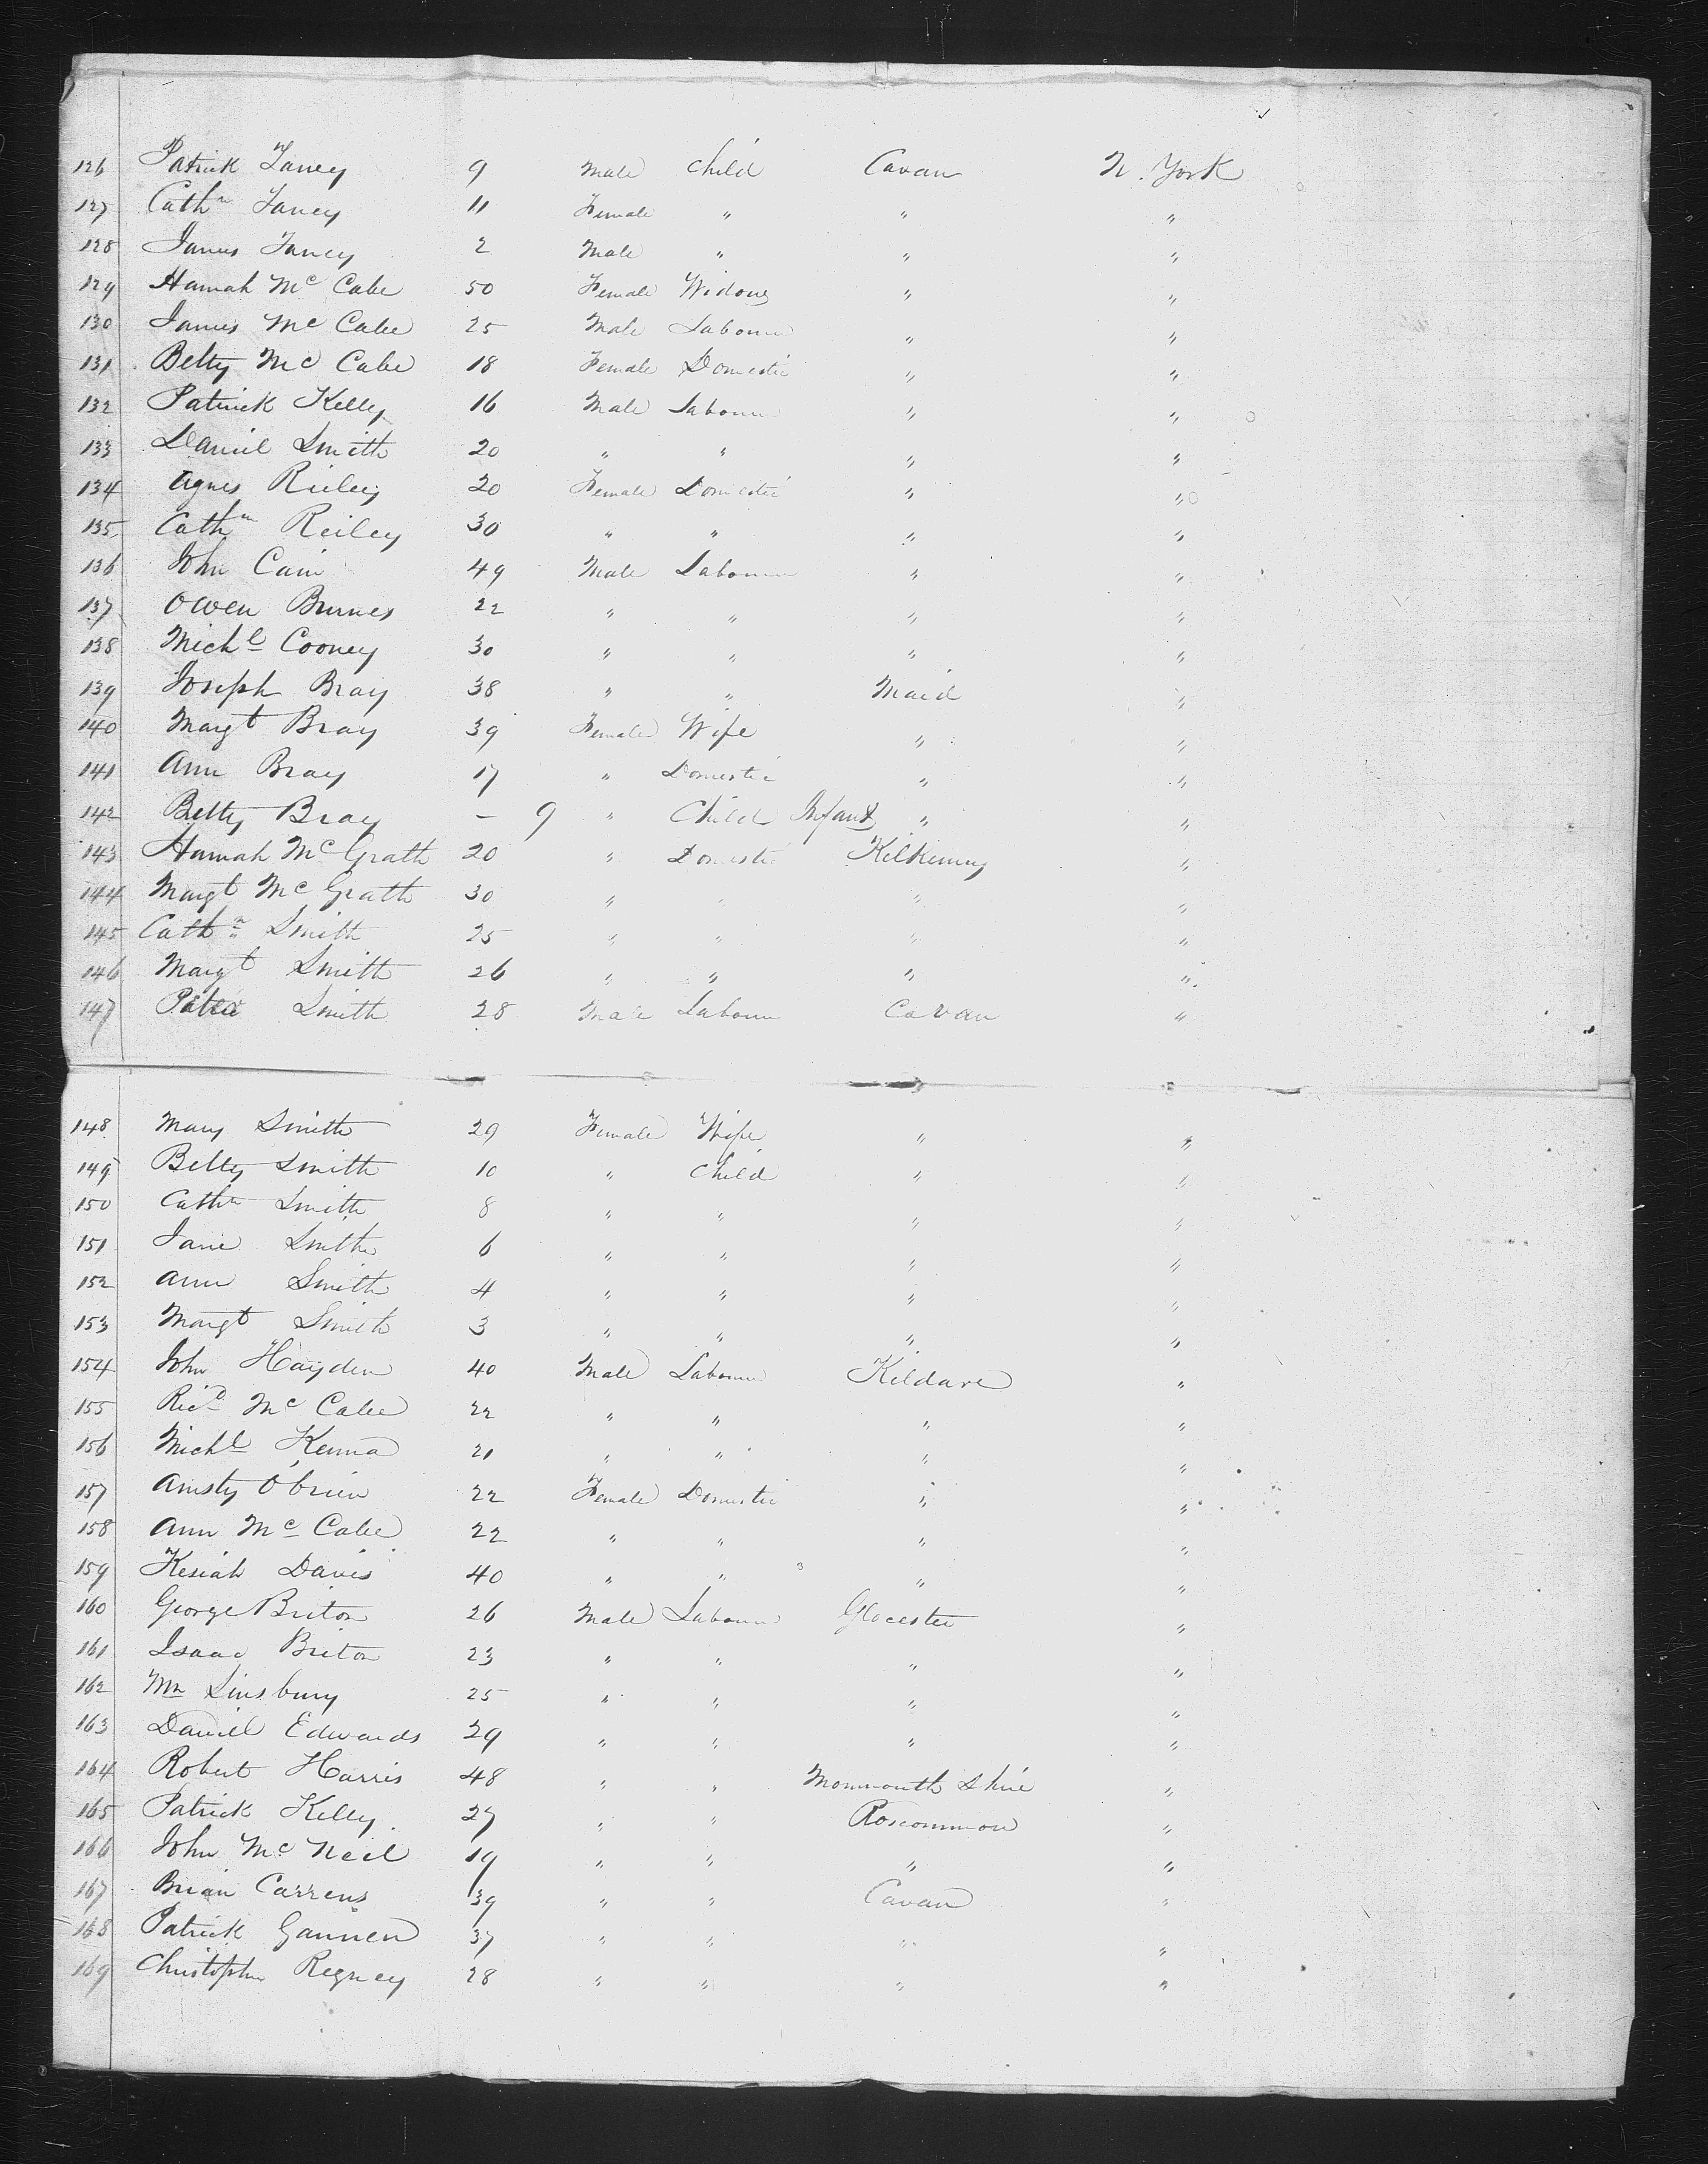 126 Patrick Fancy 9 Male Child Cavan N. York
127 Cathn Fancy 11 Female " " "
128 James Fancy 2 Male " " "
129 Hannah Mc Cabe 50 Female Widow " "
130 James Mc Cabe 25 Male Labourer " "
131 Betty Mc Cabe 18 Female Domestic " "
132 Patrick Kelly 16 Male Labourer " "
133 Daniel Smith 20 " " " "
134 Agnes Rieley 20 Female Domestic " "
135 Cathn Reiley 30 " " " "
136 John Cain 49 Male Labourer " "
137 Owen Burnes 22 " " " "
138 Michl Cooney 30 " " " "
139 Joseph Bray 38 " " Maid "
140 Margt Bray 39 Female Wife " "
141 Ann Bray 17 " Domestic " "
142 Betty Bray - 9 " Child Infant " "
143 Hannah Mc Grath 20 " Domestic Kilkenny "
144 Margt Mc Grath 30 " " " "
145 Cathn Smith 25 " " " "
146 Margt Smith 26 " " " "
147 Smith 28 Male Labourer Cavan "
148 Mary Smith 29 Female Wife " "
149 Betty Smith 10 " Child " "
150 Cathn Smith 8 " " " "
151 Jane Smith 6 " " " "
152 Ann Smith 4 " " " "
153 Margt Smith 3 " " " "
154 John Hayden 40 Male Labourer Kildare "
155 Ricd Mc Cabe 22 " " " "
156 Michl Kenna 21 " " " "
157 Ansty O'brien 22 Female Domestic " "
158 Ann Mc Cabe 22 " " " "
159 Kesiah Davis 40 " " " "
160 George Briton 26 Male Labourer Glocester "
161 Isaac Briton 23 " " " "
162 Wm Linsbury 25 " " " "
163 Daniel Edwards 29 " " " "
164 Robert Harris 48 " " Monmouth Shire "
165 Patrick Kelly 27 " " Roscommon "
166 John Mc Neil 19 " " " "
167 Brian Carrens 39 " " Cavan "
168 Patrick Gannen 37 " " " "
169 Christopher Regney 28 " " " "